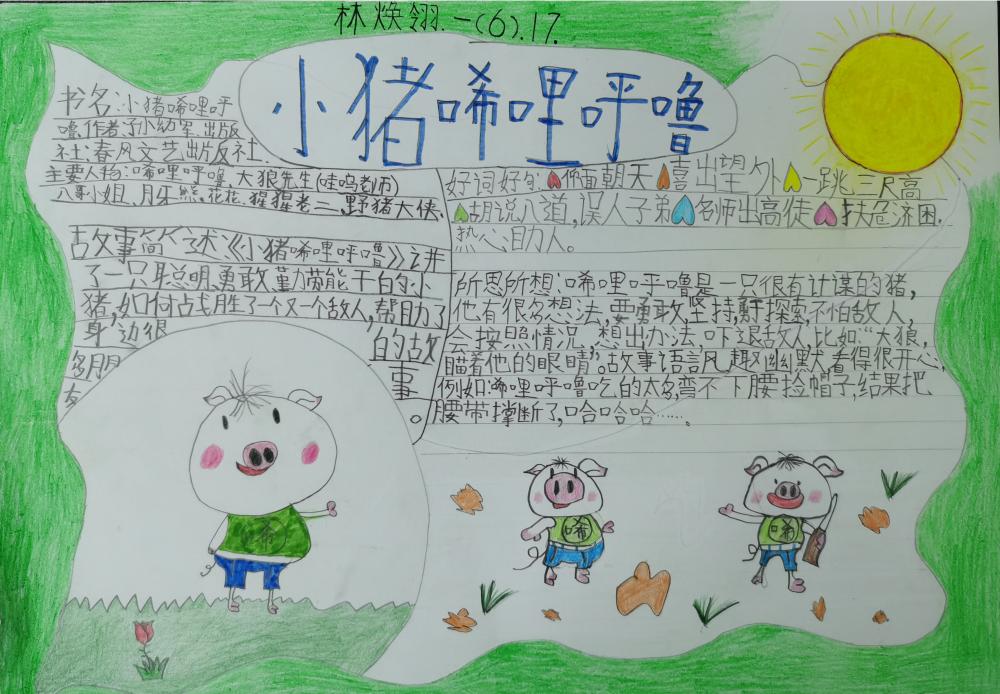 林焕翎.一(6).17.
小猪唏哩呼噜
书名:小猪唏哩呼
噜.作者:孙幼军.出版
社:春风文艺出版社.
主要人物:唏哩呼噜,大狼先生(哇呜老师)
八哥小姐,月牙熊,花花,猩猩老二,野猪大侠.
故事简述《小猪唏哩呼噜》讲
了一只聪明勇敢勤劳能干的小
猪,如何战胜了一个又一个敌人,帮助了
身边很
多朋
友
的故
事
。
好词好句:仰面朝天 喜出望外 一跳三尺高
胡说八道,误人子弟 名师出高徒 扶危济困.
热心助人。
所思所想:唏哩呼噜是一只很有计谋的猪,
他有很多想法,要勇敢,坚持,探索,不怕敌人,
会按照情况,想出办法,吓退敌人,比如:“大狼,
瞄着他的眼睛”。故事语言风趣幽默,看得很开心,
例如:唏哩呼噜吃的太多,弯不下腰捡帽子,结果把
腰带撑断了,哈哈哈……。
唏
唏
唏